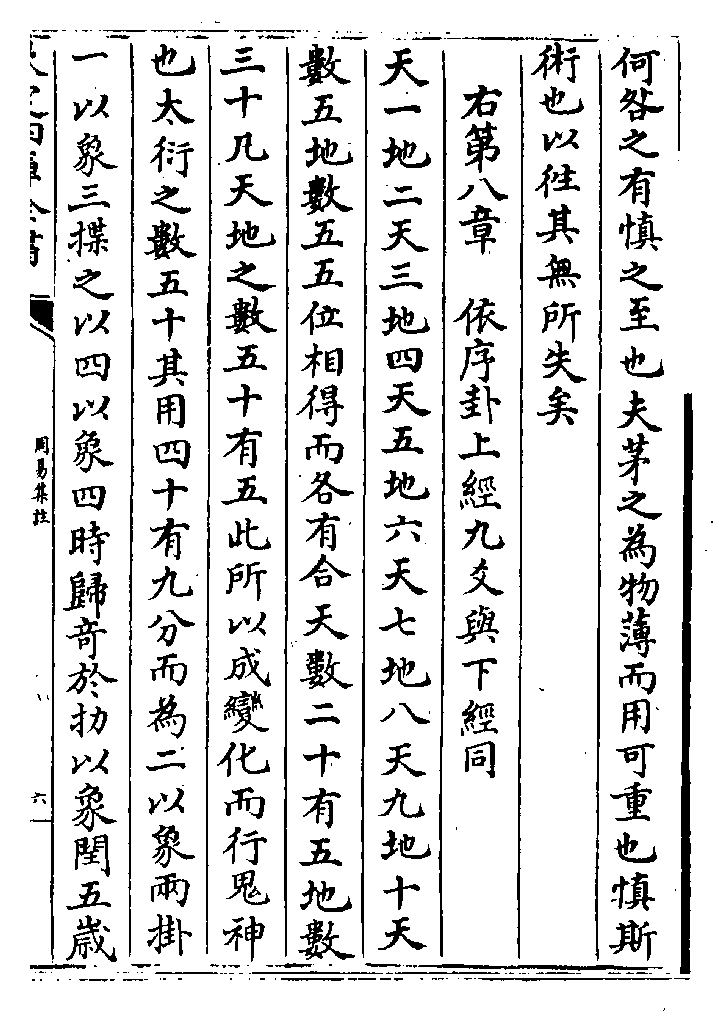 何咎之有慎之至也夫茅之為物薄而用可重也慎斯
術也以徃其無所失矣
右第八章　依序卦上經九爻與下經同
天一地二天三地四天五地六天七地八天九地十天
數五地數五五位相得而各有合天數二十有五地數
三十凡天地之數五十有五此所以成變化而行鬼神
也太衍之數五十其用四十有九分而為二以象兩掛
一以象三揲之以四以象四時歸奇於扐以象閏五歲
周易集註
六